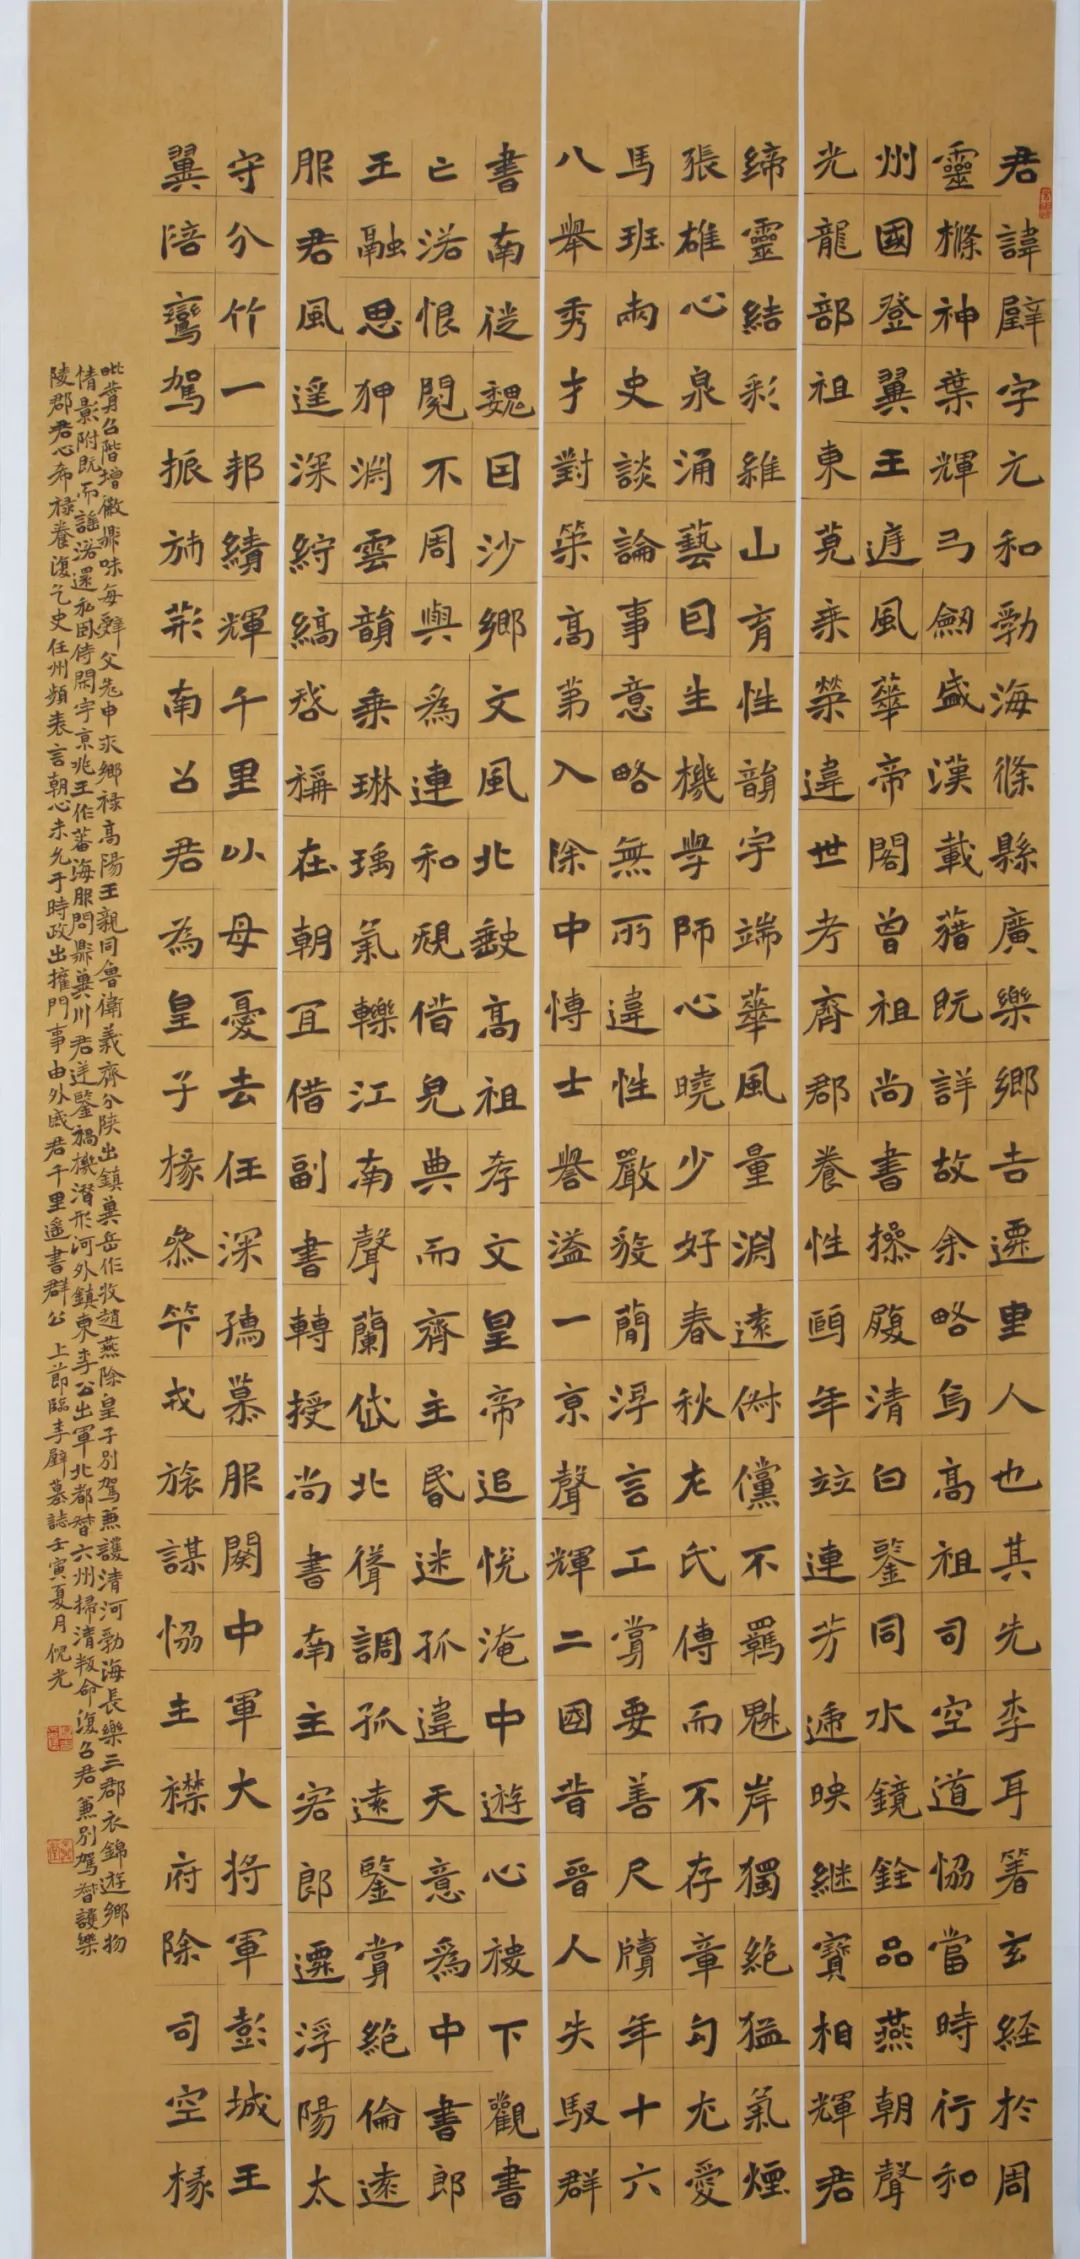 君諱璧字元和勃海條縣廣樂鄉吉遷里人也其先李耳箸玄經於周
靈條神葉輝弓劒盛漢載藉既詳故余略焉高祖司空道恊當時行和
州國登翼王遊風華帝閣曾祖尚書操履清白鑒同水鏡銓品燕朝聲
光龍部祖東莞乘榮違世考齊郡養性頤年竝連芳遞映繼寶相輝君
締靈結彩維山育性韻宇端華風量淵遠俶儻不羈魁岸獨絕猛氣煙
張雄心泉涌藝因生機學師心曉少好春秋左氏傳而不存章句尤愛
馬班兩史談論事意略無所違性嚴毅簡浮言工賞要善尺牘年十六
八舉秀才對策高第入除中博士譽溢一京聲輝二國昔晉人失馭群
書南從魏因沙鄉文風北缺高祖孝文皇帝追悅淹中遊心稷下觀書
亡落恨閱不周與為連和規借完典而齊主昏迷孤違天意為中書郎
王融思狎淵雲韻乘琳瑀氣轢江南聲蘭岱北聳調孤遠鑒賞絕倫遠
服君風遙深紵縞啓稱在朝宜借副書轉授尚書南主客郎遷浮陽太
守分竹一邦績輝千里以母憂去任深孺慕服闋中軍大將軍彭城王
翼陪鸞駕振旆荊南召君為皇子掾參算戎旅謀恊主襟府除司空掾
毗贊台階增徽鼎味每辭父老申求鄉祿高陽王親同魯衛義齊分陝出鎮冀岳作牧趙燕除皇子別駕兼護清河勃海長樂三郡衣錦遊鄉物
情影附既而謠落還私臥侍閑宇京兆王作蕃海服問鼎冀川君逆鑒禍機潛形河外鎮東李公出軍北都督六州掃清叛命復召君兼別駕督護樂
陵郡君心希祿養復乞史任州頻表言朝心未允于時政出權門事由外戚君千里遙書群公 上節臨李璧墓誌壬寅夏月倪光